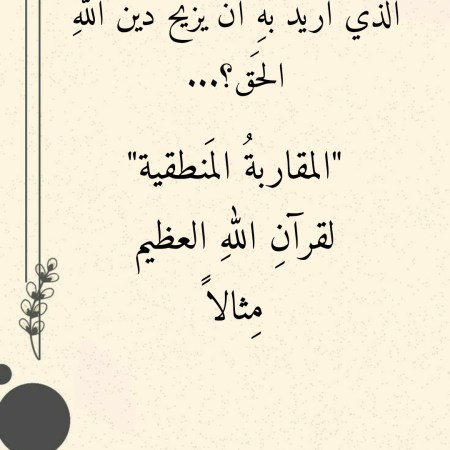 الذي أريد بهِ أن يزيح دين اللهِ
الحَق؟...
"المقاربةُ المَنطقية"
لقرآنِ اللهِ العظيم
مِثالاً